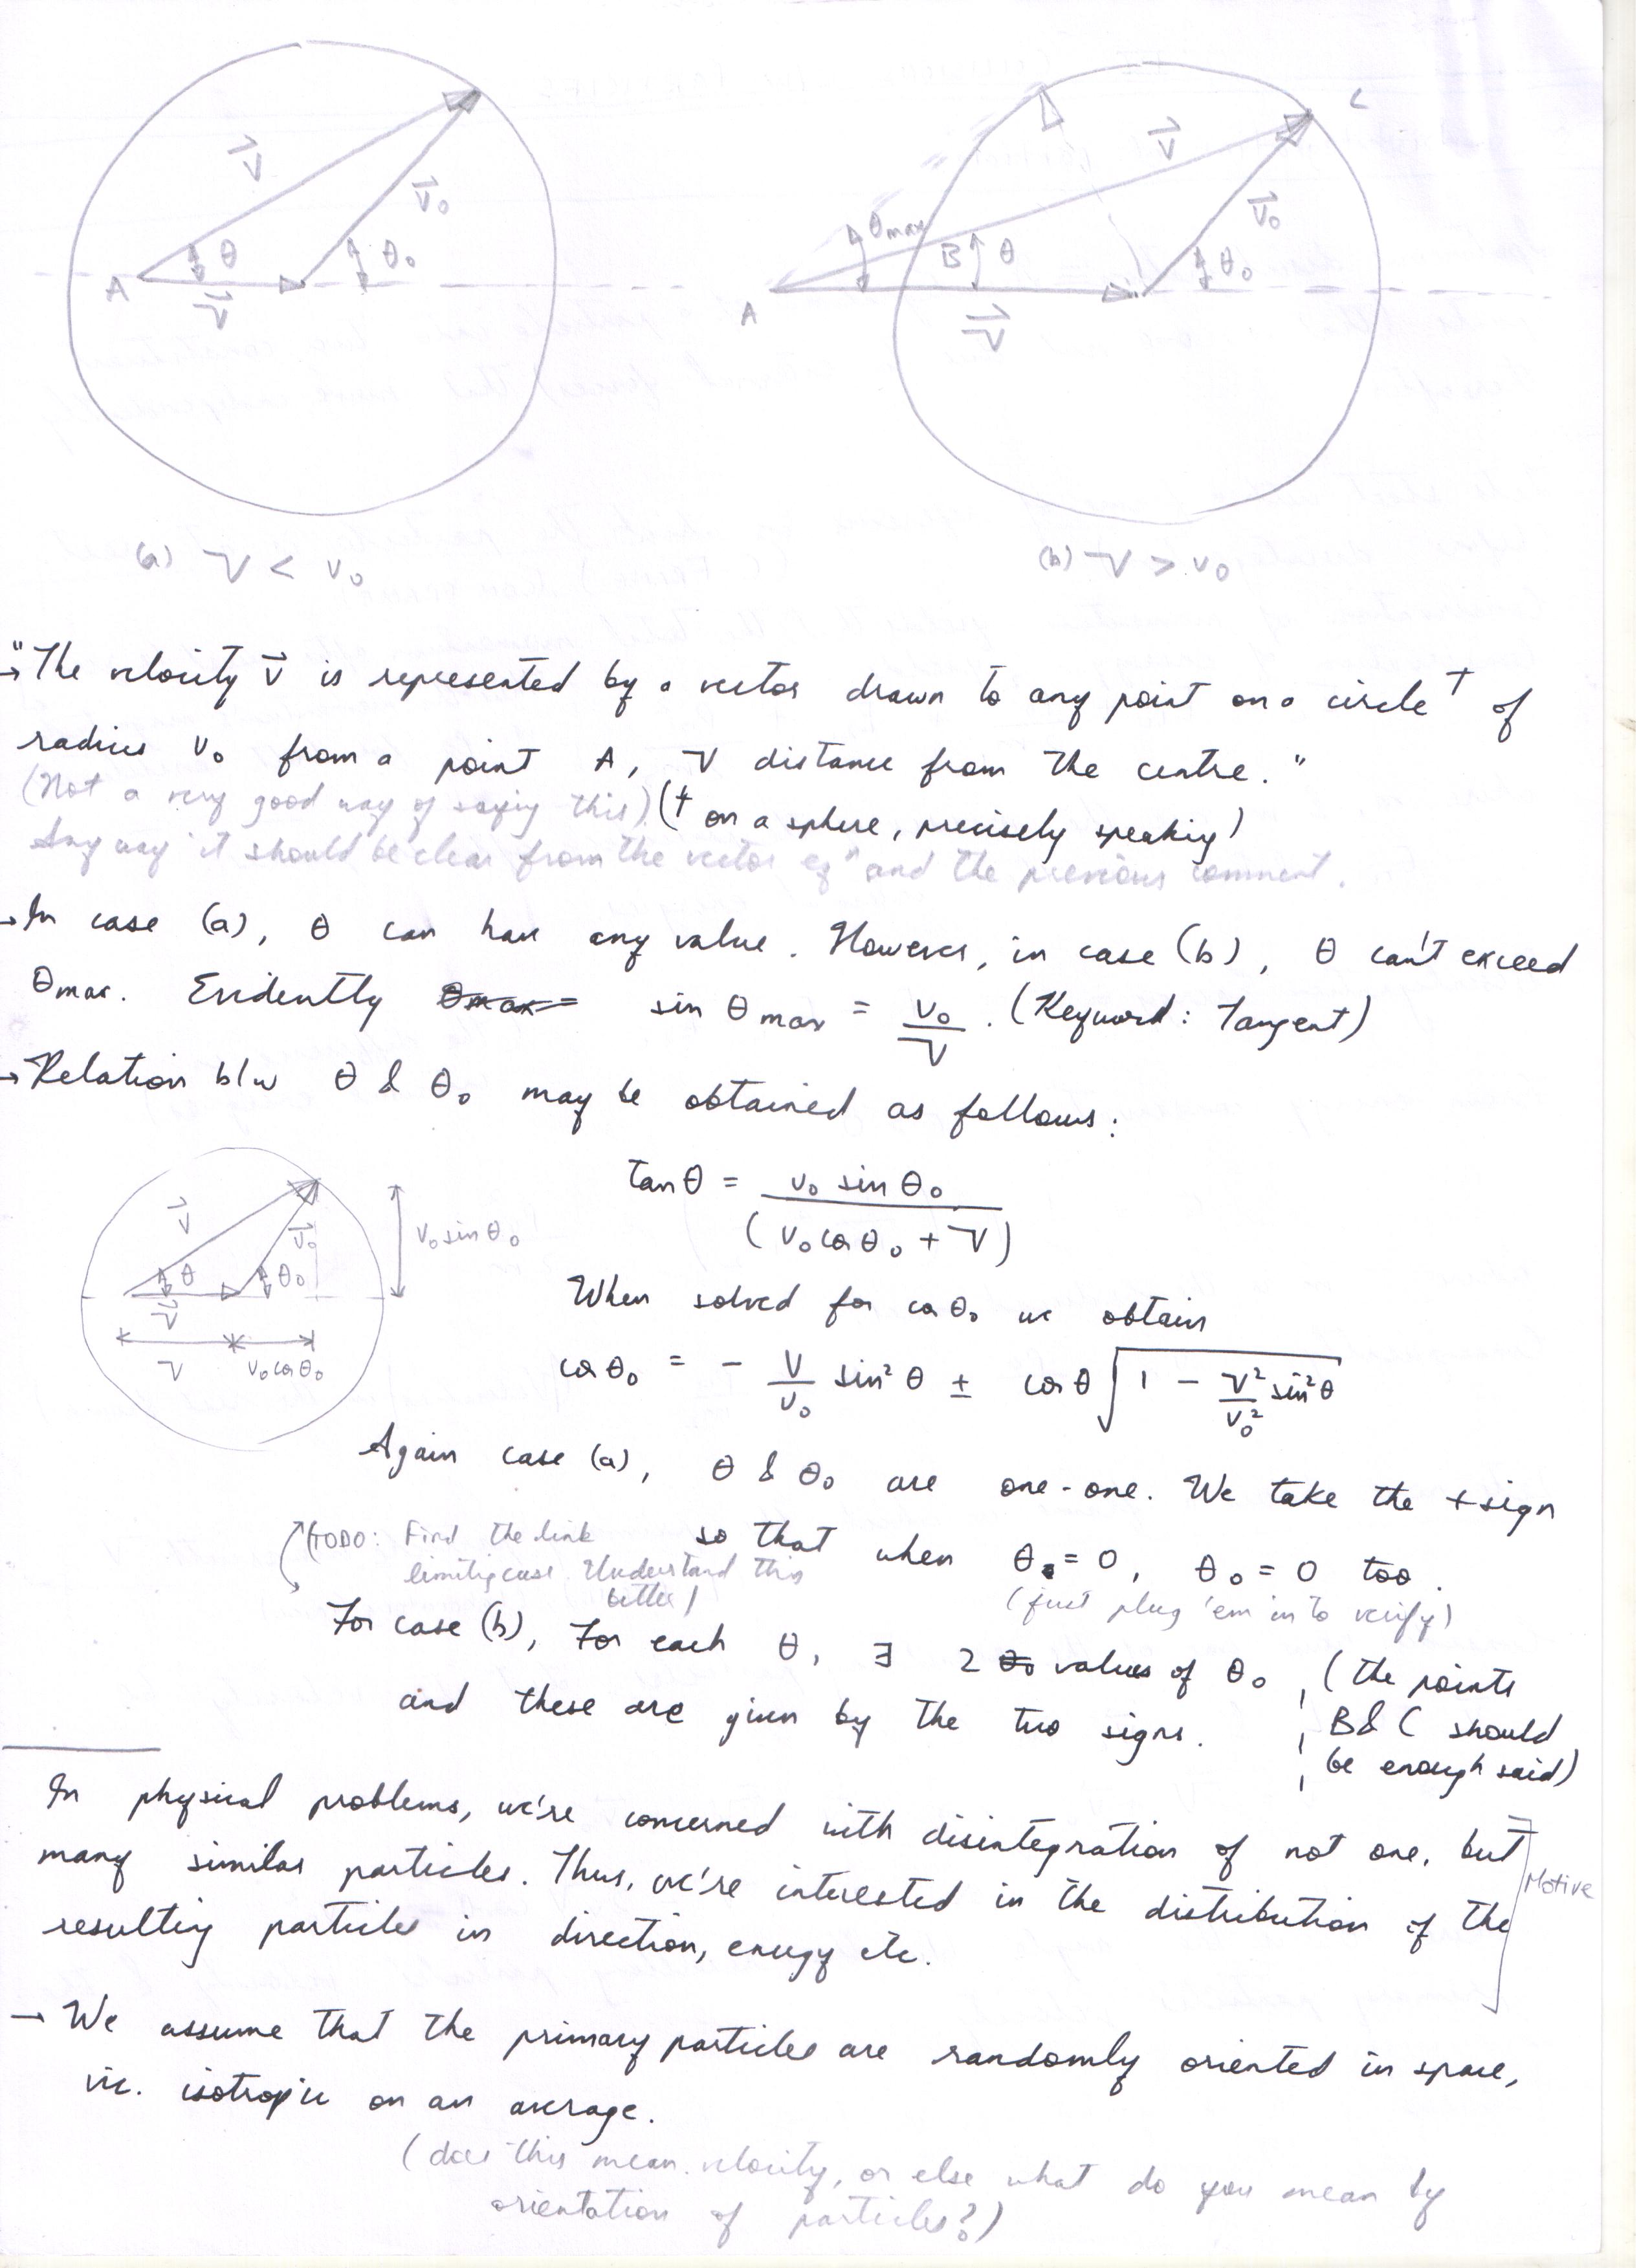 V⃗
v⃗
v⃗₀
θ
θ₀
A
(a) V < v₀
V⃗
v⃗
v⃗₀
θmax
θ
θ₀
A
B
C
(b) V > v₀
"The velocity v⃗ is represented by a vector drawn to any point on a circle† of
radius v₀ from a point A, V distance from the centre."
(Not a very good way of saying this) († on a sphere, precisely speaking)
Anyway it should be clear from the vector eqⁿ and the previous comment.
→ In case (a), θ can have any value. However, in case (b), θ can't exceed
θmax. Evidently θmax = sin θmax = v₀/V. (Keyword: Tangent)
→ Relation b/w θ & θ₀ may be obtained as follows:
tan θ = v₀ sin θ₀ / (v₀ cos θ₀ + V)
v⃗
v⃗₀
θ
θ₀
V⃗
v₀ sin θ₀
V
v₀ cos θ₀
When solved for cos θ₀ we obtain
cos θ₀ = - V/v₀ sin² θ ± cos θ √(1 - V²/v₀² sin² θ)
Again case (a), θ & θ₀ are one-one. We take the + sign
so that when θ = 0, θ₀ = 0 too.
(just plug 'em in to verify)
(TODO: Find the link
limiting case. Understand this
better)
For case (b), For each θ, ∃ 2 θ₀ values of θ₀
and these are given by the two signs.
(the points
B & C should
be enough said)
In physical problems, we're concerned with disintegration of not one, but
many similar particles. Thus, we're interested in the distribution of the
resulting particles in direction, energy etc.
Motive
→ We assume that the primary particles are randomly oriented in space,
viz. isotropic on an average.
(does this mean velocity, or else what do you mean by
orientation of particles?)